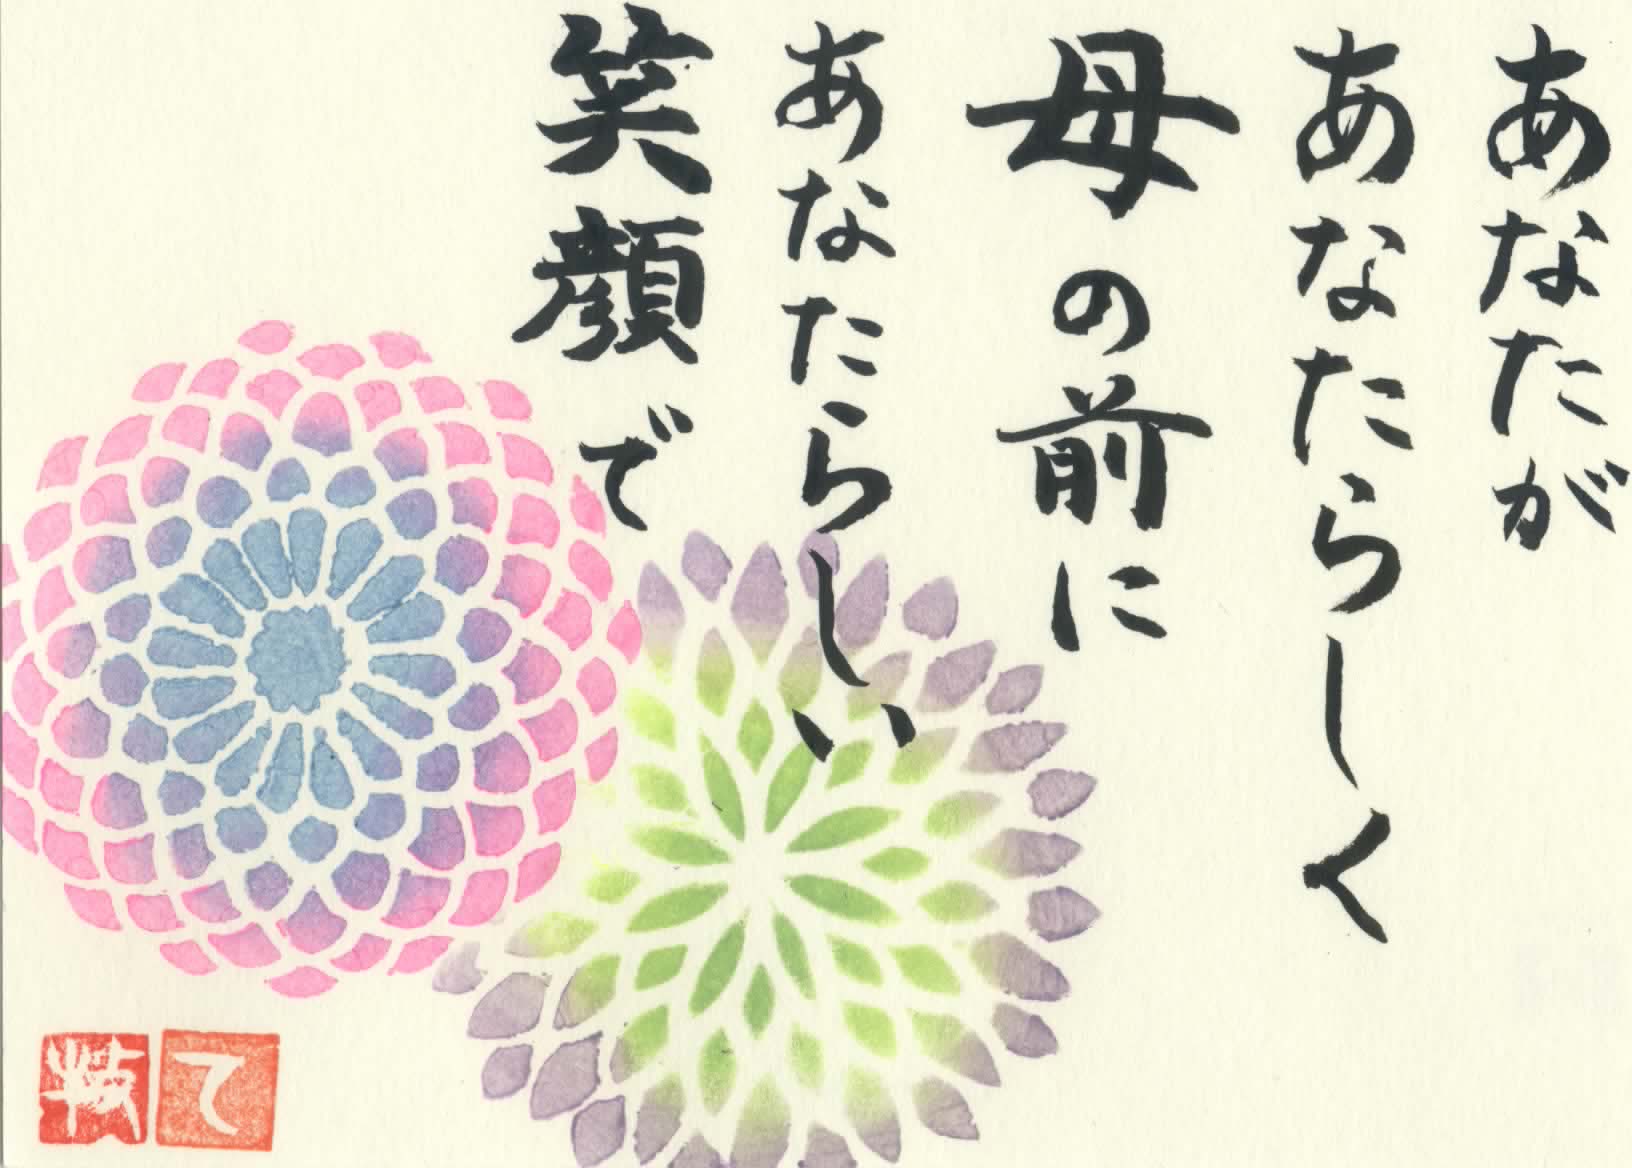 あなたが
あなたらしく
母の前に
あなたらしい
笑顔で
て